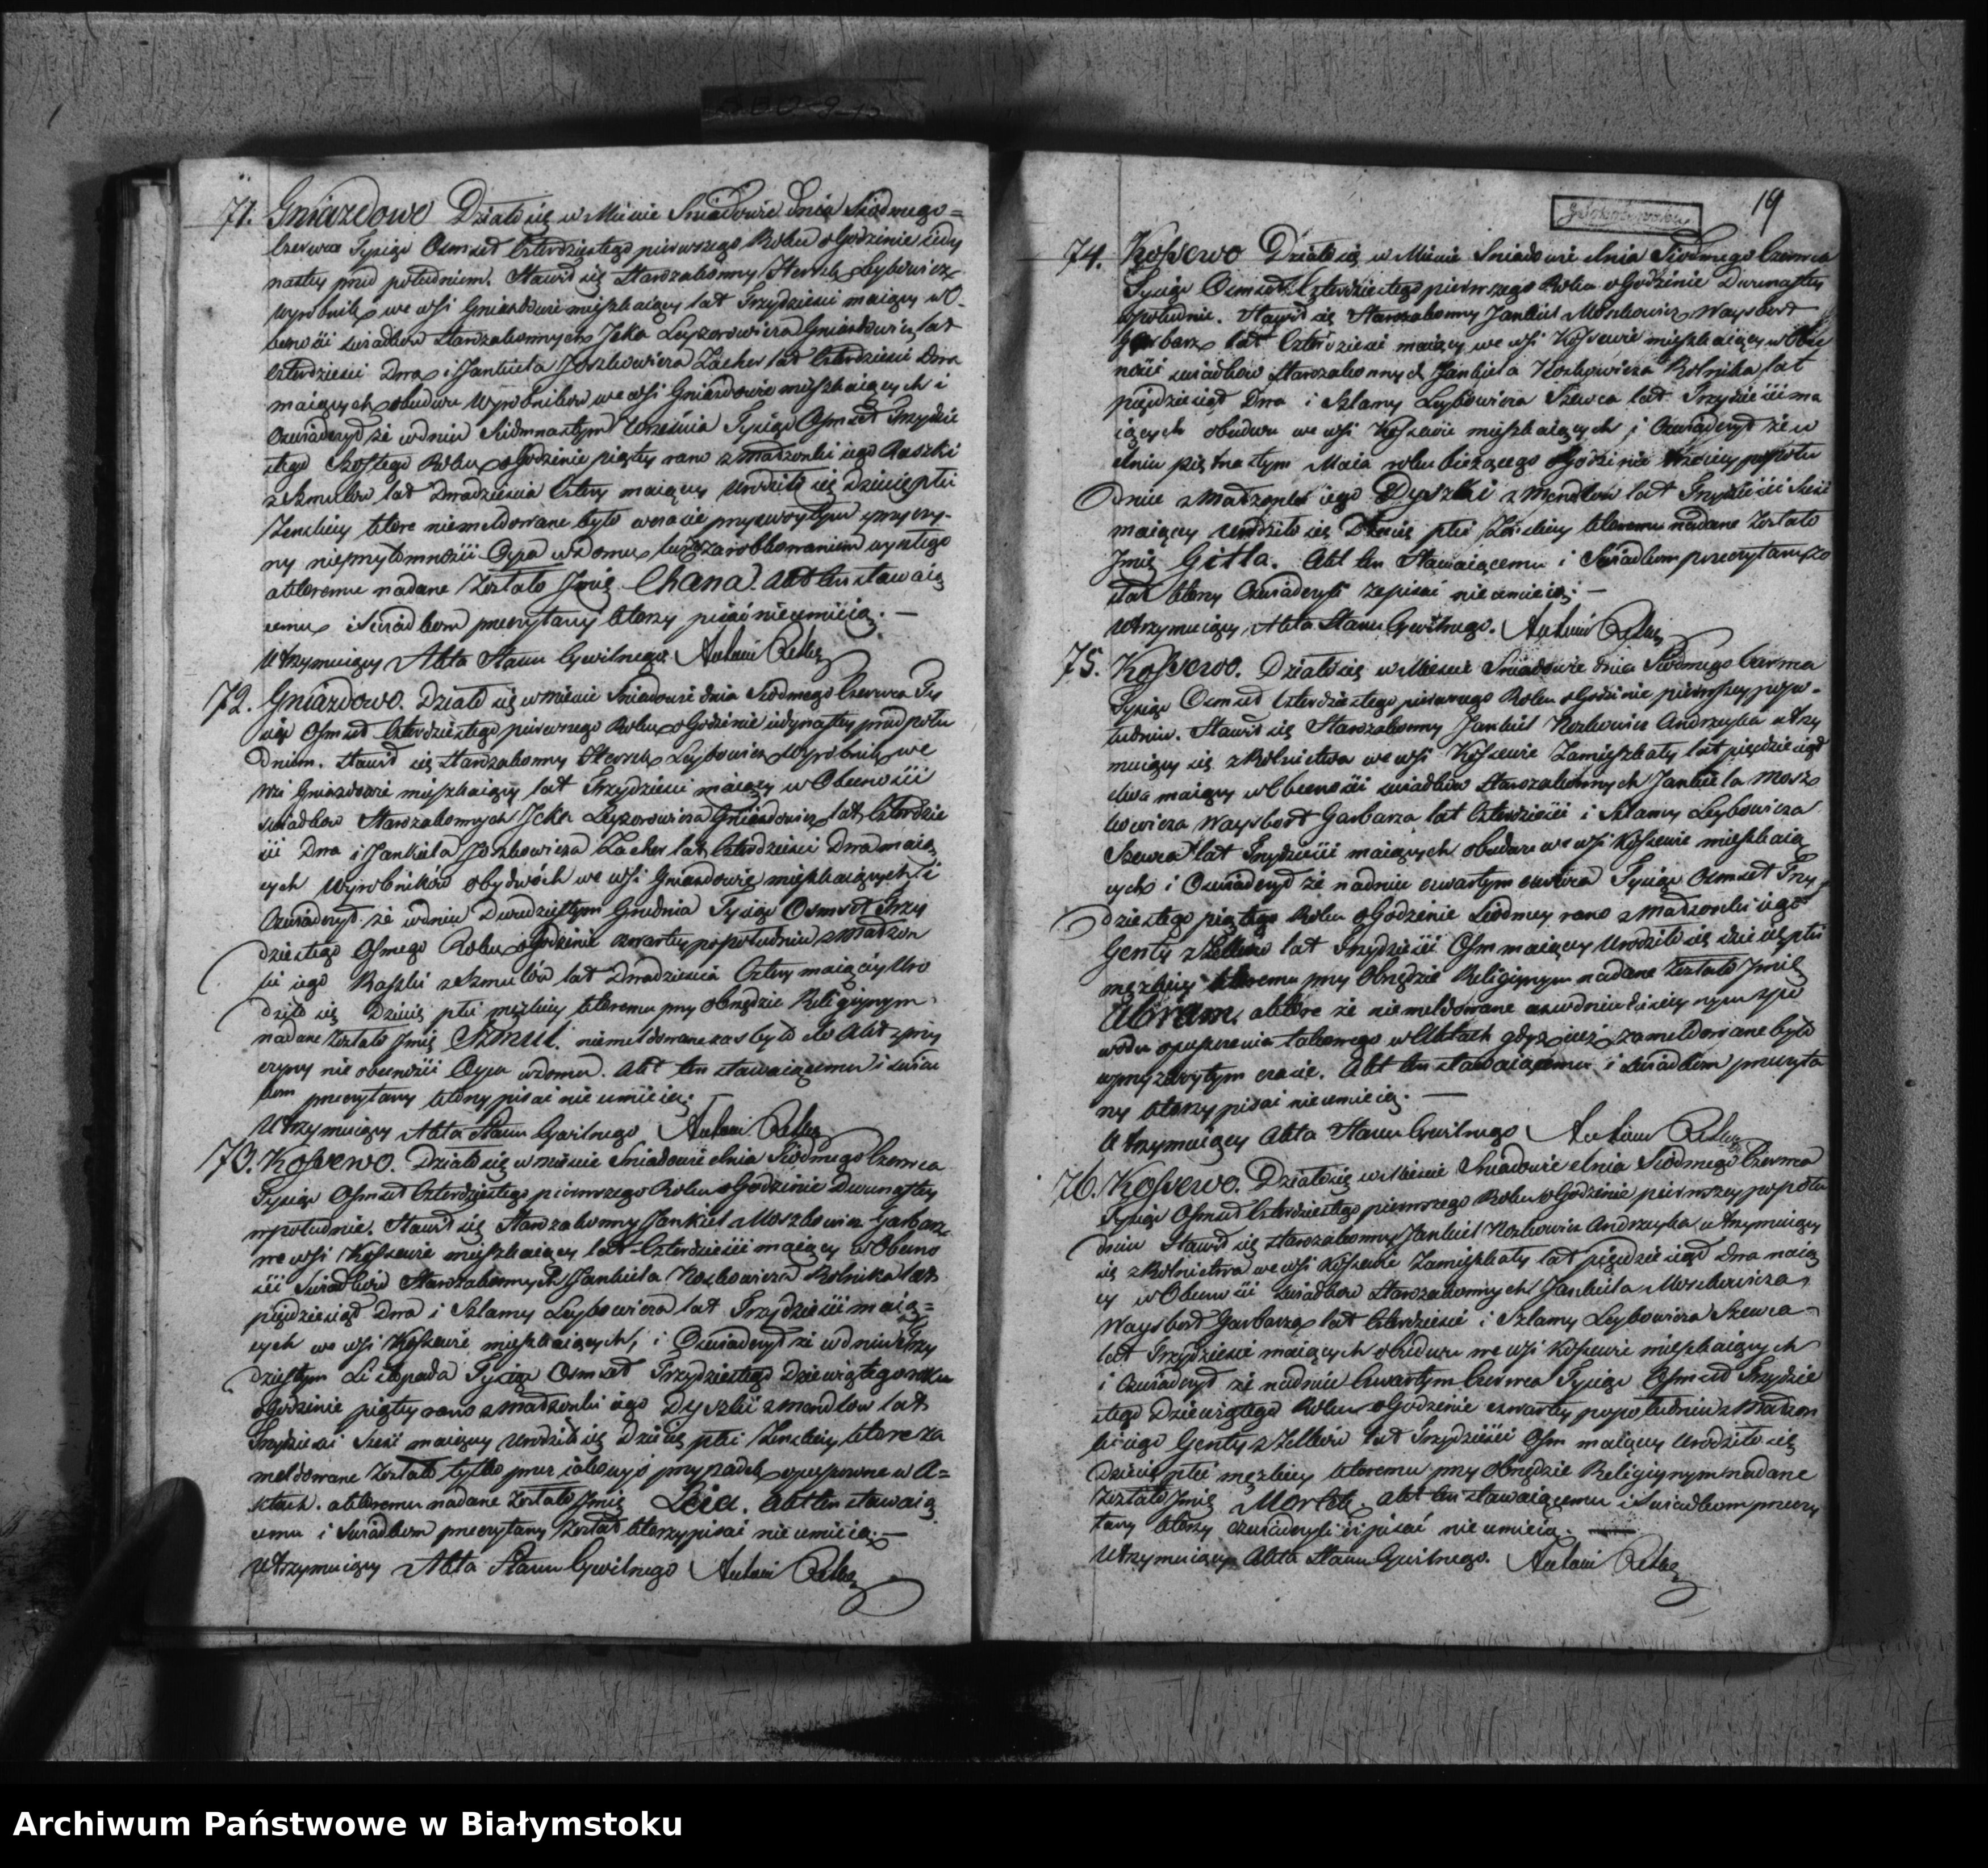 71. Gniazdowo Działo się w Mieście Sniadowie dnia Siodmego=
Czerwca Tysiąc Osmset Czterdziestego pierwszego Roku o Godzinie iedy
nastey przed południem. Stawił się Starozakonny Hersch Leybowicz
Wyrobnik we wsi Gniazdowie mieszkaiący lat Trzydzieści maiący w O-
becności swiadków Starozakonnych Icka Leyzorowicza Gniazdowicz lat
Czterdzieści Dwa i Jankiela Joszkowicza Zacher lat Czterdzieści Dwa
maiących obudwu Wyrobników we wsi Gniazdowie mieszkaiących i
Oswiadczył że w dniu Siedmnastym Września Tysiąc Osmset Trzydzie
stego Szostego Roku o Godzinie piątey rano z Małżonki iego Raszki
z Szmulów lat Dwadzieścia Cztery maiącey Urodziło się dziecię płci
Żenskiey które niemeldowane było w czasie przyzwoytym z przyczy-
ny nieprzytomności Oyca w domu zarobkowaniem zyiętego
a któremu nadane Zostało Imię Chana. Akt ten stawaią
cemu i Swiadkom przeczytany którzy pisać nieumieią. —
Utrzymuiący Akta Stanu Cywilnego. Antoni
72. Gniazdowo. Działo się w mieście Sniadowie dnia Siodmego Czerwca Ty
siąc Osmset Czterdziestego pierwszego Roku o Godzinie iedynastey przed połu
dniem. Stawił się Starozakonny Hersch Leybowicz Wyrobnik we
Wsi Gniazdowie mieszkaiący lat Trzydzieści maiący w Obecności
swiadków Starozakonnych Icka Leyzorowicza Gniazdowicz lat Czterdzie
ści Dwa i Jankiela Joszkowicza Zacher lat Czterdzieści Dwa maią
cych Wyrobników obydwóch we wsi Gniazdowie mieszkaiących i
Oswiadczył że w dniu Dwudziestym Grudnia Tysiąc Osmset Trzy
dziestego Osmego Roku o Godzinie czwartey popołudniu z Małżon
ki iego Raszki z Szmulów lat Dwadzieścia Cztery maiącey Uro
dziło się Dziecię płci męzkiey któremu przy obrzędzie Religiynym
nadane Zostało Imię Szmul. niemeldowane zas było do Akt z przy
czyny nieobecności Oyca w domu. Akt ten stawaiącemu i swiad
kom przeczytany którzy pisać nie umieią.
Utrzymuiący Akta Stanu Cywilnego Antoni
73. Kossewo. Działo się w mieście Sniadowie dnia Siodmego Czerwca
Tysiąc Osmset Czterdziestego pierwszego Roku o Godzinie Dwunastey
w południe. Stawił się Starozakonny Jankiel Moszkowicz Garbarz
we wsi Kossewie mieszkaiący lat Czterdzieści maiący w Obecno
ści Swiadków Starozakonnych Jankiela Kozkowicza Rolnika lat
pięćdziesiąt Dwa i Szlamy Leybowicza lat Trzydzieści maią=
cych we wsi Kossewie mieszkaiących, i Oswiadczył że w dniu Trzy
dziestym Listopada Tysiąc Osmset Trzydziestego Dziewiątego roku
o Godzinie piątey rano z Małżonki iego Dyszki z Mendlow lat
Trzydzieści Sześć maiącey urodziło się Dziecię płci Żenskiey które za
meldowane Zostało tylko przez iakowyś przypadek opuszczone w A=
ktach. a któremu nadane Zostało Imię Leia. Akt ten stawaią
cemu i Swiadkom przeczytany Został którzy pisać nie umieią. —
Utrzymuiący Akta Stanu Cywilnego Antoni
19
74. Kossewo Działo się w Mieście Sniadowie dnia Siodmego Czerwca
Tysiąc Osmset Czterdziestego pierwszego Roku o Godzinie Dwunastey
w południe. Stawił się Starozakonny Jankiel Moszkowicz Waysbord
Garbarz lat Czterdzieści maiący we wsi Kossewie mieszkaiący w Obec
ności swiadków Starozakonnych Jankiela Kozkowicza Rolnika lat
pięćdziesiąt Dwa i Szlamy Leybowicza Szewca lat Trzydzieści ma
iących obudwu we wsi Kossewie mieszkaiących i Oswiadczył że w
dniu piętnastym Maia roku bieżącego o Godzinie trzeciey popołu
dniu z Małżonki iego Dyszki z Mendlow lat Trzydzieści Sześć
maiącey Urodziło się Dziecię płci Żenskiey któremu nadane Zostało
Imię Gitla. Akt ten Stawaiącemu i Swiadkom przeczytany Zo
stał którzy Oswiadczyli że pisać nie umieią. —
Utrzymuiący Akta Stanu Cywilnego. Antoni
75. Kossewo. Działo się w Mieście Sniadowie dnia Siodmego Czerwca
Tysiąc Osmset Czterdziestego pierwszego Roku o Godzinie pierwszey popo-
łudniu. Stawił się Starozakonny Jankiel Kozkowicz Andrzeyka utrzy
muiący się z Rolnictwa we wsi Kossewie Zamieszkały lat pięćdziesiąt
dwa maiący w Obecności swiadków Starozakonnych Jankiela Mosz
kowicza Waysbord Garbarza lat Czterdzieści i Szlamy Leybowicza
Szewca lat Trzydzieści maiących obudwu we wsi Kossewie mieszkaią
cych i Oswiadczył że na dniu czwartym czerwca Tysiąc Osmset Trzy
dziestego piątego Roku o Godzinie Siodmey rano z Małżonki iego
Genty z Zelkow lat Trzydzieści Osm maiącey Urodziło się dziecię płci
męzkiey któremu przy Obrzędzie Religiynym nadane Zostało Imię
Abram. a które że nie meldowane z po
wodu opuszczenia takowego w Aktach gdyż zameldowane było
w przyzwoytym czasie. Akt ten stawaiącemu i Swiadkom przeczyta
ny którzy pisać nie umieią. —
Utrzymuiący Akta Stanu Cywilnego Antoni
76. Kossewo. Działo się w Mieście Sniadowie dnia Siodmego Czerwca
Tysiąc Osmset Czterdziestego pierwszego Roku o Godzinie pierwszey popołu
dniu Stawił się starozakonny Jankiel Kozkowicz Andrzeyka utrzymuiący
się z Rolnictwa we wsi Kossewie Zamieszkały lat pięćdziesiąt dwa maią
cy w Obecności Swiadków Starozakonnych Jankiela Moszkowicza
Waysbord Garbarza lat Czterdzieści i Szlamy Leybowicza Szewca
lat Trzydzieści maiących obudwu we wsi Kossewie mieszkaiących
i Oswiadczył że na dniu Czwartym Czerwca Tysiąc Osmset Trzydzie
stego Dziewiątego Roku o Godzinie czwartey popołudniu z Małżon
ki iego Genty z Zelkow lat Trzydzieści Osm maiącey Urodziło się
Dziecię płci męzkiey któremu przy obrzędzie Religiynym nadane
Zostało Imię Akt ten stawaiącemu i Swiadkom przeczy
tany którzy oswiadczyli iż pisać nie umieią.
Utrzymuiący Akta Stanu Cywilnego. Antoni
Archiwum Państwowe w Białymstoku